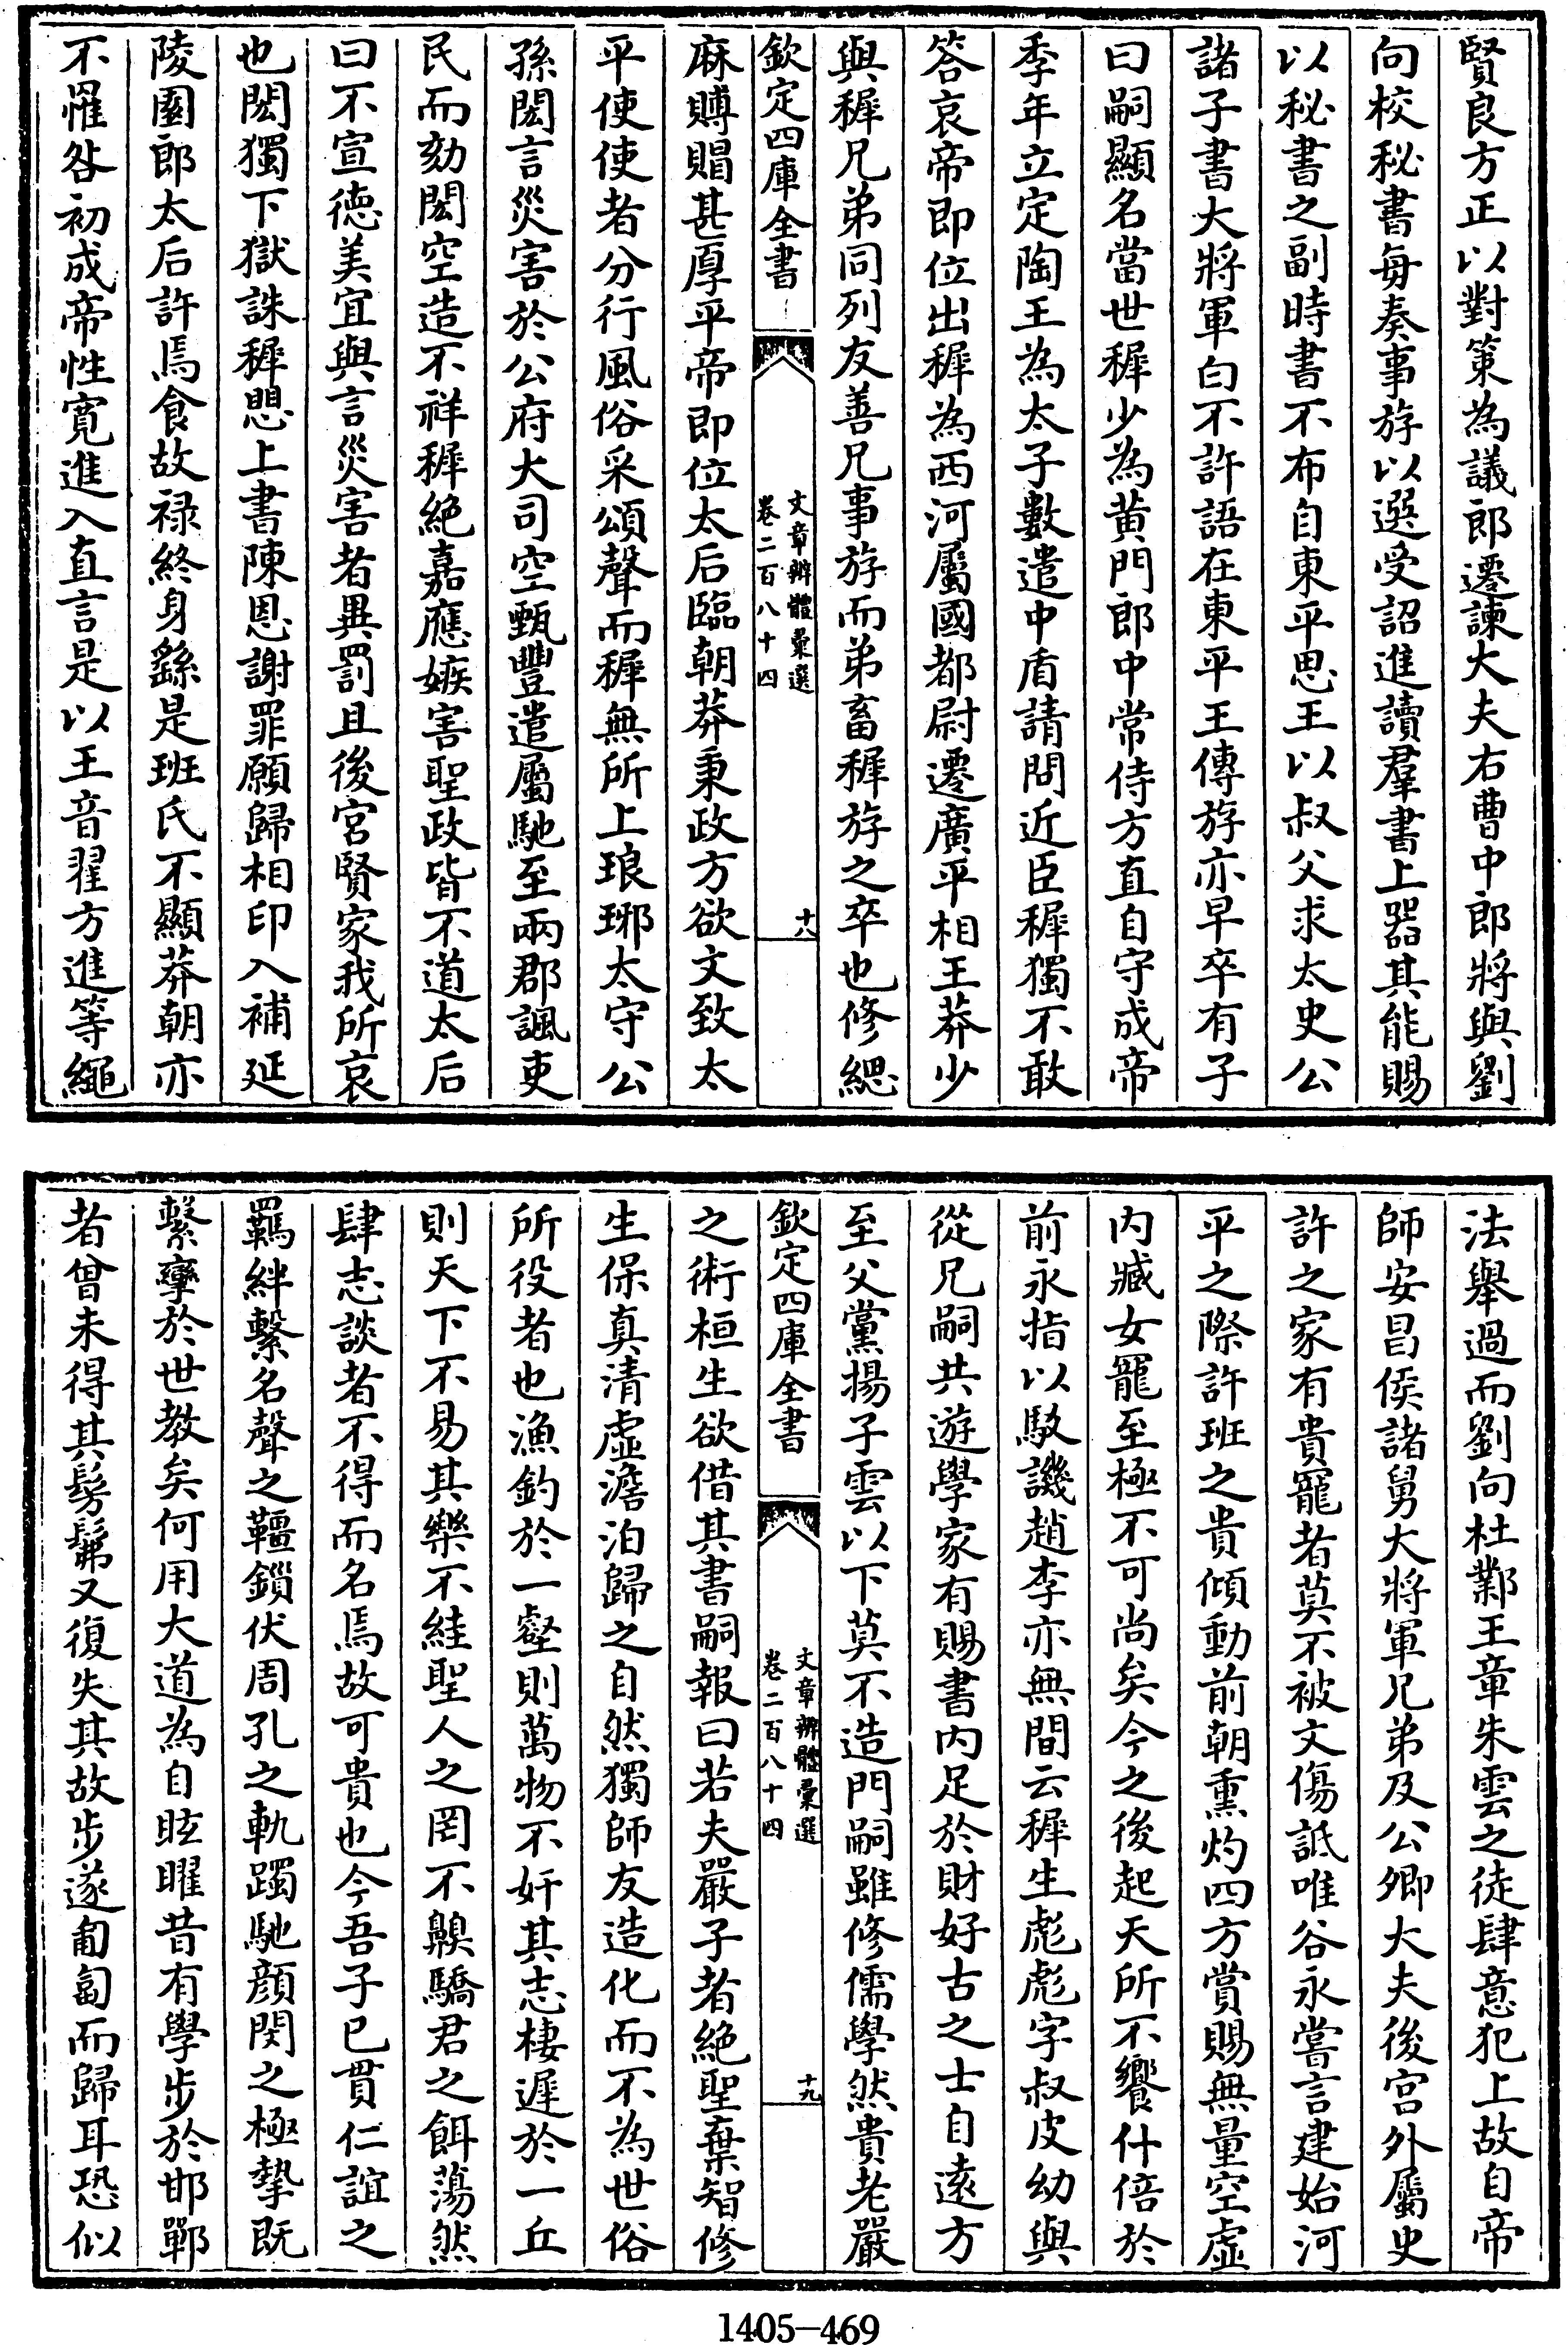 賢良方正以對策為議郎遷諫大夫右曹中郎將與劉
向校秘書每奏事斿以選受詔進讀羣書上器其能賜
以秘書之副時書不布自東平思王以叔父求太史公
諸子書大將軍白不許語在東平王傳斿亦早卒有子
曰嗣顯名當世穉少為黄門郎中常侍方直自守成帝
季年立定陶王為太子數遣中盾請問近臣穉獨不敢
答哀帝即位出穉為西河屬國都尉遷廣平相王莽少
與穉兄弟同列友善兄事斿而弟畜穉斿之卒也修緦
欽定四庫全書
文章辨體彙選
卷二百八十四
十八
麻賻賵甚厚平帝即位太后臨朝莽秉政方欲文致太
平使使者分行風俗采頌聲而穉無所上琅琊太守公
孫閎言災害於公府大司空甄豐遣屬馳至兩郡諷吏
民而劾閎空造不祥穉絶嘉應嫉害聖政皆不道太后
曰不宣德美宜與言災害者異罰且後宮賢家我所哀
也閎獨下獄誅穉懼上書陳恩謝罪願歸相印入補延
陵園郎太后許焉食故禄終身繇是班氏不顯莽朝亦
不罹咎初成帝性寛進入直言是以王音翟方進等繩
法舉過而劉向杜鄴王章朱雲之徒肆意犯上故自帝
師安昌侯諸舅大將軍兄弟及公卿大夫後宮外屬史
許之家有貴寵者莫不被文傷詆唯谷永嘗言建始河
平之際許班之貴傾動前朝熏灼四方賞賜無量空虛
内臧女寵至極不可尚矣今之後起天所不饗什倍於
前永指以駁譏趙李亦無間云穉生彪彪字叔皮幼與
從兄嗣共遊學家有賜書内足於財好古之士自遠方
至父黨揚子雲以下莫不造門嗣雖修儒學然貴老嚴
欽定四庫全書
文章辨體彙選
卷二百八十四
十九
之術桓生欲借其書嗣報曰若夫嚴子者絶聖棄智修
生保真清虛澹泊歸之自然獨師友造化而不為世俗
所役者也漁釣於一壑則萬物不奸其志棲遲於一丘
則天下不易其樂不絓聖人之罔不齅驕君之餌蕩然
肆志談者不得而名焉故可貴也今吾子已貫仁誼之
羈絆繫名聲之韁鎖伏周孔之軌躅馳顔閔之極摯既
繫攣於世教矣何用大道為自眩曜昔有學步於邯鄲
者曾未得其髣髴又復失其故步遂匍匐而歸耳恐似
1405-469